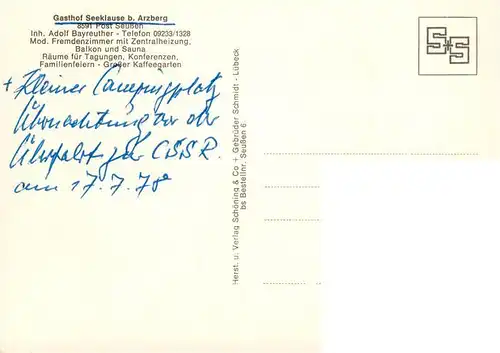 Gasthof Seeklause b. Arzberg
8591 Post Seußen
Inh. Adolf Bayreuther - Telefon 09233/1328
Mod. Fremdenzimmer mit Zentralheizung,
Balkon und Sauna
Räume für Tagungen, Konferenzen,
Familienfeiern - Großer Kaffeegarten
+ Kleiner Campingplatz
Übernachtung vor der
Überfahrt zur ČSSR.
am 17.7.78
Herst. u. Verlag Schöning & Co + Gebrüder Schmidt - Lübeck
bs Bestellnr. Seußen 6
S+S